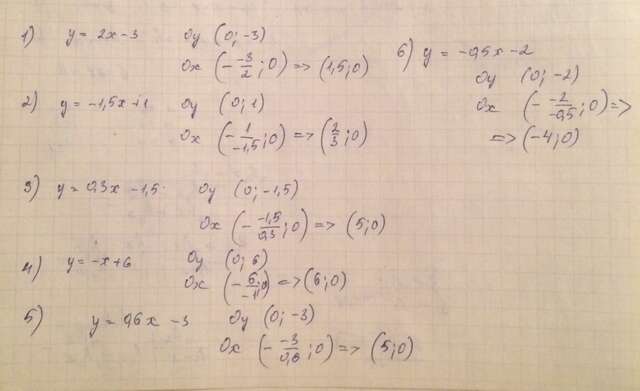 1) y = 2x - 3   Oy (0; -3)
Ox (- -3/2 ; 0) => (1,5; 0)
2) y = -1,5x + 1   Oy (0; 1)
Ox (- 1/-1,5 ; 0) => (2/3 ; 0)
3) y = 0,3x - 1,5   Oy (0; -1,5)
Ox (- -1,5/0,3 ; 0) => (5; 0)
4) y = -x + 6   Oy (0; 6)
Ox (- 6/-1 ; 0) => (6; 0)
5) y = 0,6x - 3   Oy (0; -3)
Ox (- -3/0,6 ; 0) => (5; 0)
6) y = -0,5x - 2
Oy (0; -2)
Ox (- -2/-0,5 ; 0) =>
=> (-4; 0)